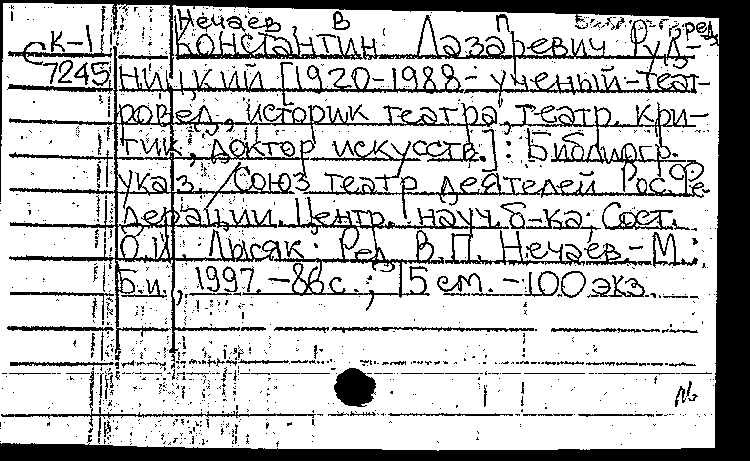 Нечаев, В. П. ред.
К-1 Константин Лазаревич Руд-
С 7245 ницкий [1920-1988 - ученый-теат-
ровед, историк театра, театр. кри-
тик, доктор искусств.]: Библиогр.
указ. / Союз театр. деятелей Рос. Фе-
дерации. Центр. науч. б-ка; Сост.
О.И. Лысяк; Ред. В.П. Нечаев. - М.:
Б.и., 1997. - 86 с.; 15 см. - 100 экз.